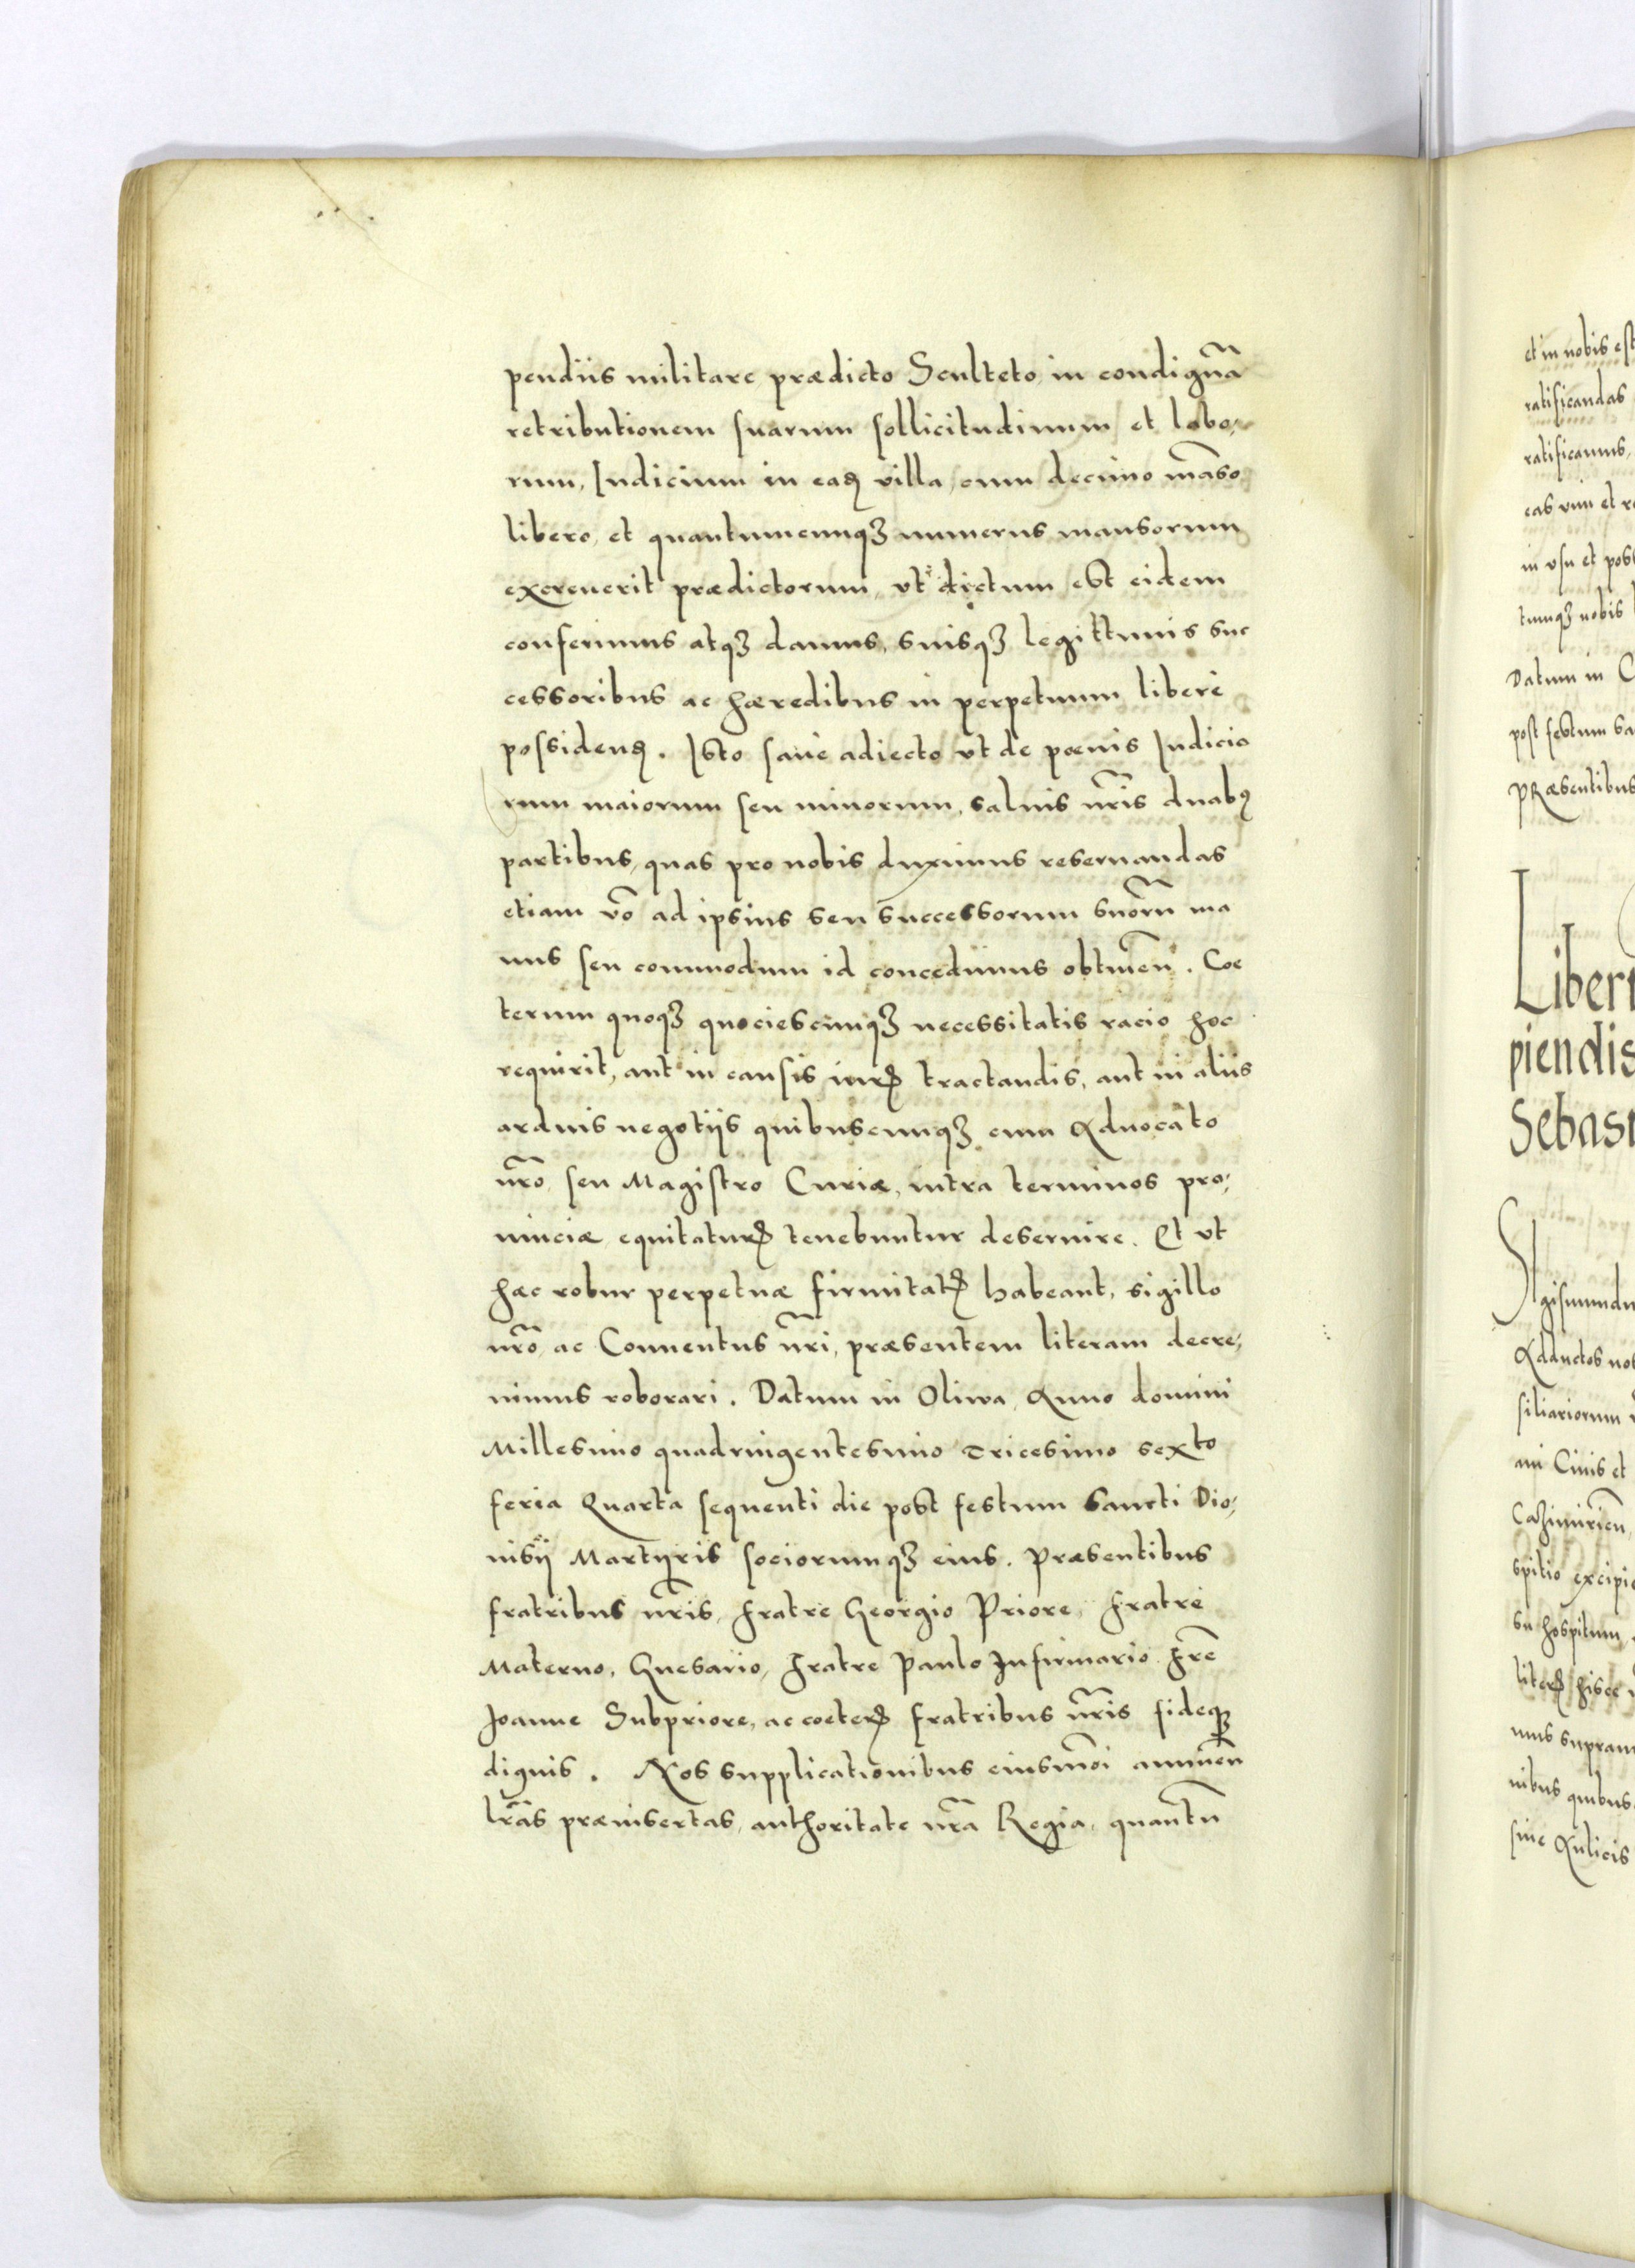 pendiis militare prædicto Sculteto in condignã
retributionem suarum sollicitudinum et labo,
rum, Iudicium in eaꝶ villa cum decimo mãso
libero et quantumcunqꝫ numerus mansorum
excreuerit prædictorum, vt dictum est eidem
conferimus atqꝫ damus, suisqꝫ legittimis suc
cessoribus ac hæredibus in perpetuum libere
possidenꝶ. Isto sane adiecto vt de pœnis Iudicio
rum maiorum seu minorum, saluis nr̃is duabꝰ
partibus, quas pro nobis duximus reseruandas
etiam võ ad ipsius seu successorum suõrũ ma
nus seu commodum id concedimus obtineñ. Coe
terum quoqꝫ quociescunqꝫ necessitatis racio hoc
requirit, aut in causis iurꝶ tractandis, aut in aliis
arduis negotijs quibuscunqꝫ cum Aduocato
nr̃o seu Magistro Curiæ, intra terminos pro,
uinciæ equitaturꝶ tenebuntur deseruire. Et vt
hæc robur perpetuæ firmitatꝶ habeant, sigillo
nr̃o ac Conuentus nr̃i, præsentem literam decre,
uimus roborari. Datum in Oliwa, Anno domini
Millesimo quadringentesimo Tricesimo sexto
feria Quarta sequenti die post festum Sancti Dio,
nisÿ Martÿris sociorumqꝫ eius. Præsentibus
fratribus nr̃is, Fratre Georgio Priore, Fratre
Materno, Guesario, Fratre Paulo Infirmario Fr̃e
Joanne Subpriore, ac coeterꝶ fratribus nr̃is fideqꝫ
dignis. Nos supplicationibus eiusmõi annueñ
lr̃as præinsertas, authoritate nr̃a Regia, quantũ
et in nobis est
ratificandas
ratificamus,
eas vim et ro
in vsu et poss
tumqꝫ nobis
Datum in C
post festum Sa
PRæsentibus
Libert
piendis
Sebast
Sigismundu
Adductos nos
siliariorum
mi Ciuis et
Cazimirieñ,
spitio excipie
su hospitum
literꝶ hisce
mus supram
nibus quibus
siue Aulicis